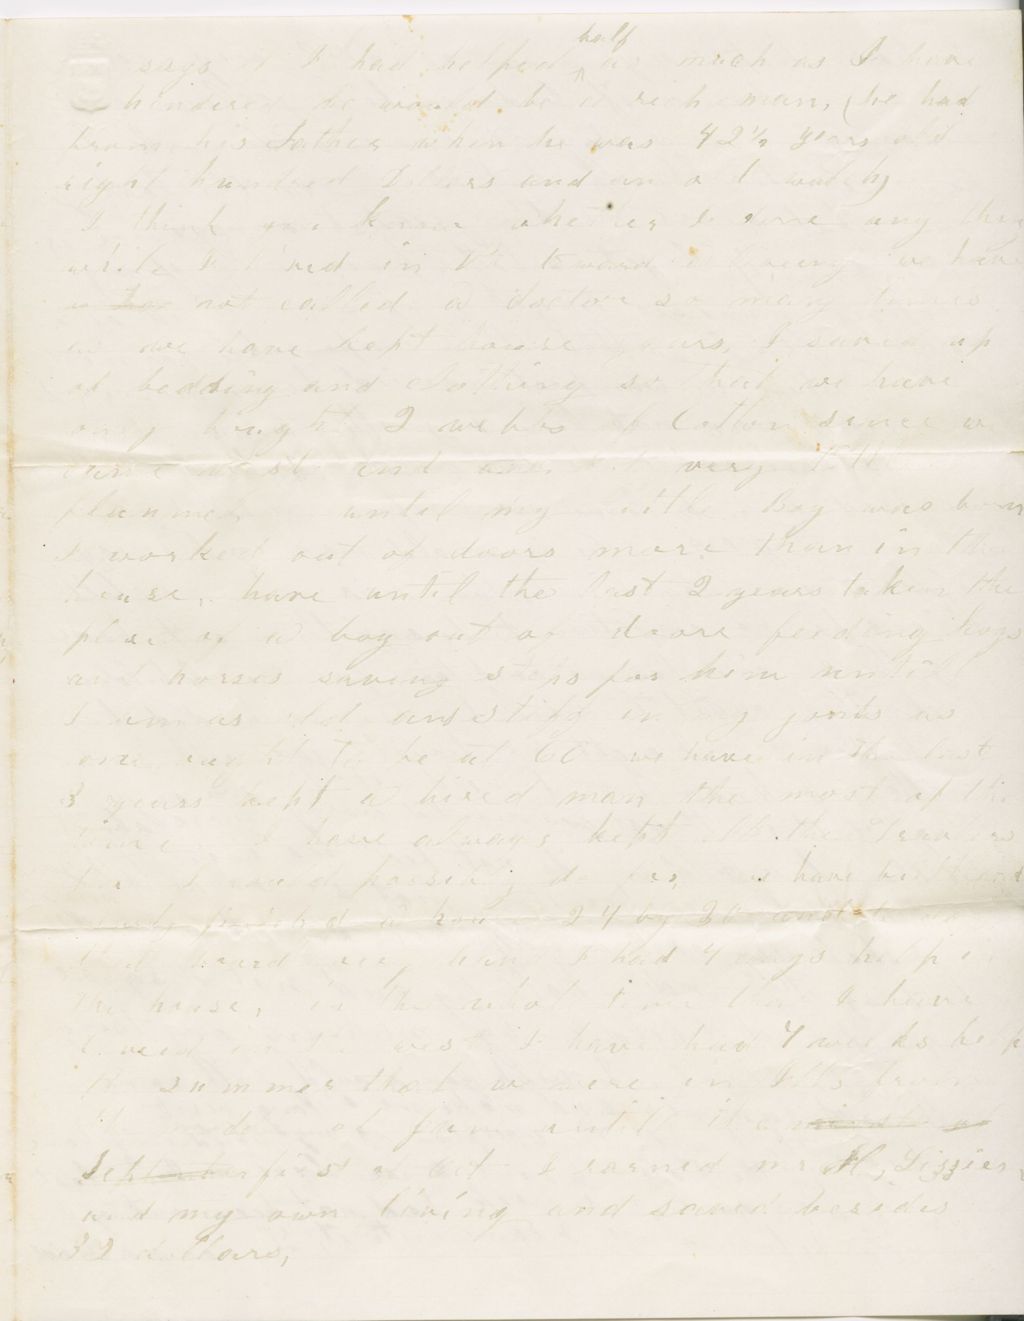 says if I had helped half as much as I have
hindered he would be a rich man, (he had
from his Father when he was 42 1/2 years old
eight hundred Dollars and an old watch)
I think you know whether I done any thing
while I lived in the toward a living we have
not called a doctor so many times
as we have kept house years, I saved up
of bedding and clothing so that we have
only bought 2 webs of Cotton since we
came west and but very little
flannel until my little Boy was born
I worked out of doors more than in the
house, have until the last 2 years taken the
place of a boy out of doors feeding hogs
and horses saving steps for him until
I am as old and stiff in my joints as
one ought to be at 60 we have in the last
3 years kept a hired man the most of the
time I have always kept all the
I could possibly do for, we have built and
nearly finished a house 24 by 30 and
I had 4 days help in
the house, in the whole time that I have
lived in the west I have had 4 weeks help
the summer that we were in Ills from
the of June untill the
September first of Oct I earned mr H, Lizzies
and my own living and saved besides
32 dollars,